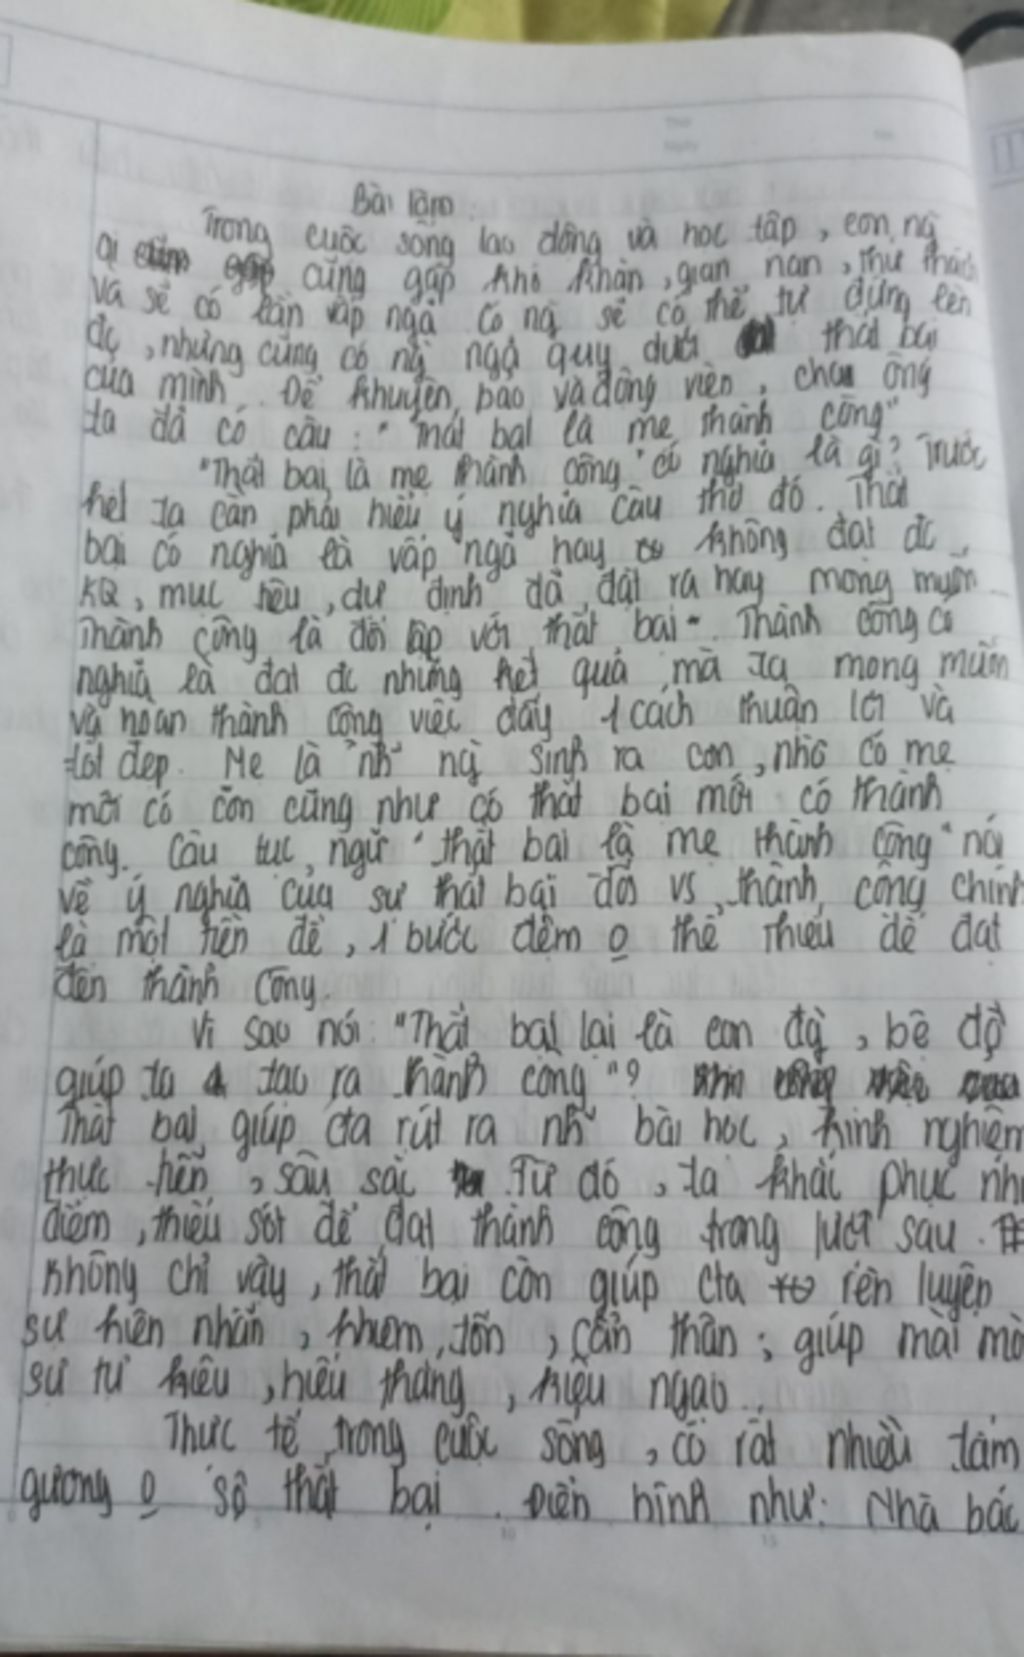 Bài làm
Trong cuộc sống lao động và học tập, con ng
ai cũng gặp khó khăn, gian nan, thử thách
và sẽ có lần vấp ngã. Có ng sẽ có thể tự đứng lên
đc, nhưng cũng có ng ngã quỵ dưới thất bại
của mình. Để khuyên bảo và động viên, cha ông
ta đã có câu: "Thất bại là mẹ thành công"
"Thất bại là mẹ thành công" có nghĩa là gì? Trước
hết ta cần phải hiểu ý nghĩa câu thơ đó. Thất
bại có nghĩa là vấp ngã hay không đạt đc
KQ, mục tiêu, dự định đã đặt ra hay mong muốn
Thành công là đối lập với thất bại. Thành công có
nghĩa là đạt đc những kết quả mà ta mong muốn
và hoàn thành công việc đấy 1 cách thuận lợi và
tốt đẹp. Mẹ là ng sinh ra con, nhờ có mẹ
mới có con cũng như có thất bại mới có thành
công. Câu tục ngữ "thất bại là mẹ thành công" nói
về ý nghĩa của sự thất bại đối vs thành công chính
là một tiền đề, 1 bước đệm o thể thiếu để đạt
đến thành công.
Vì sao nói: "Thất bại lại là con đg, bệ đỡ
giúp ta tạo ra thành công"?
Thất bại giúp cta rút ra nh~ bài học, kinh nghiệm
thực tiễn, sâu sắc. Từ đó, ta khắc phục nh
điểm, thiếu sót để đạt thành công trong lượt sau.
Không chỉ vậy, thất bại còn giúp cta rèn luyện
sự kiên nhẫn, khiêm tốn, cẩn thận; giúp mài mò
sự tự kiêu, hiếu thắng, kiêu ngạo.
Thực tế trong cuộc sống, có rất nhiều tấm
gương o sợ thất bại. Điển hình như: Nhà bác